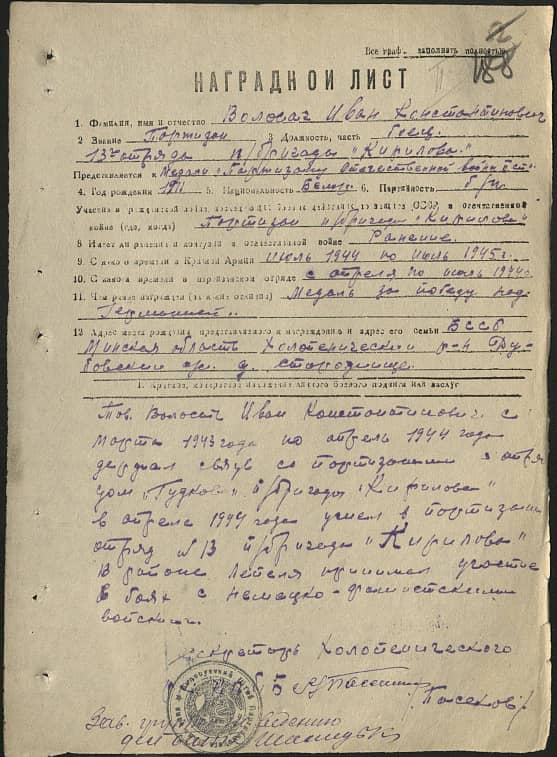 Все граф. заполнять полностью
188
НАГРАДНОЙ ЛИСТ
1. Фамилия, имя и отчество Волосач Иван Константинович
2 Звание Портизон 3 Должность, часть боец
13го отряда п/бригады "Кирилова"
Представляется к Медали "Партизану Отечественной войны
4. Год рождения 1911 5. Национальность Белор. 6. Партийность б/п
Участие в гражданской войне, последующих боевых действиях по защите СССР и отечественной
войне (где, когда) Портизон п/бригады "Кирилова"
8 Имеет ли ранения и контузии в отечественной войне Ранение.
9. С какого времени в Красной Армии июль 1944 по июль 1945 г.
10. С какого времени в партизанском отряде с апреля по июль 1944 г.
11. Чем ранее награжден (за какие отличия) Медаль за победу над
Германией.
12 Адрес места рождения представляемого к награждению и адрес его семьи БССР
Минская область Холопенический р-н Дубовский с/с д. Стародница
1. Краткое, конкретное изложение личного боевого подвига или заслуг
Тов. Волосач Иван Константинович с
Марта 1943 года по апрель 1944 года
держал связь со портизонами с отря
дом "Гудкова" п/бригады "Кирилова"
в апреле 1944 года ушел в портизанс
отряд № 13 п/бригады "Кирилова"
В районе Лепеля принимал участие
в боях с немецко-фашистскими
войсками.
Секретарь Холопенического
Пасеков
Зав.